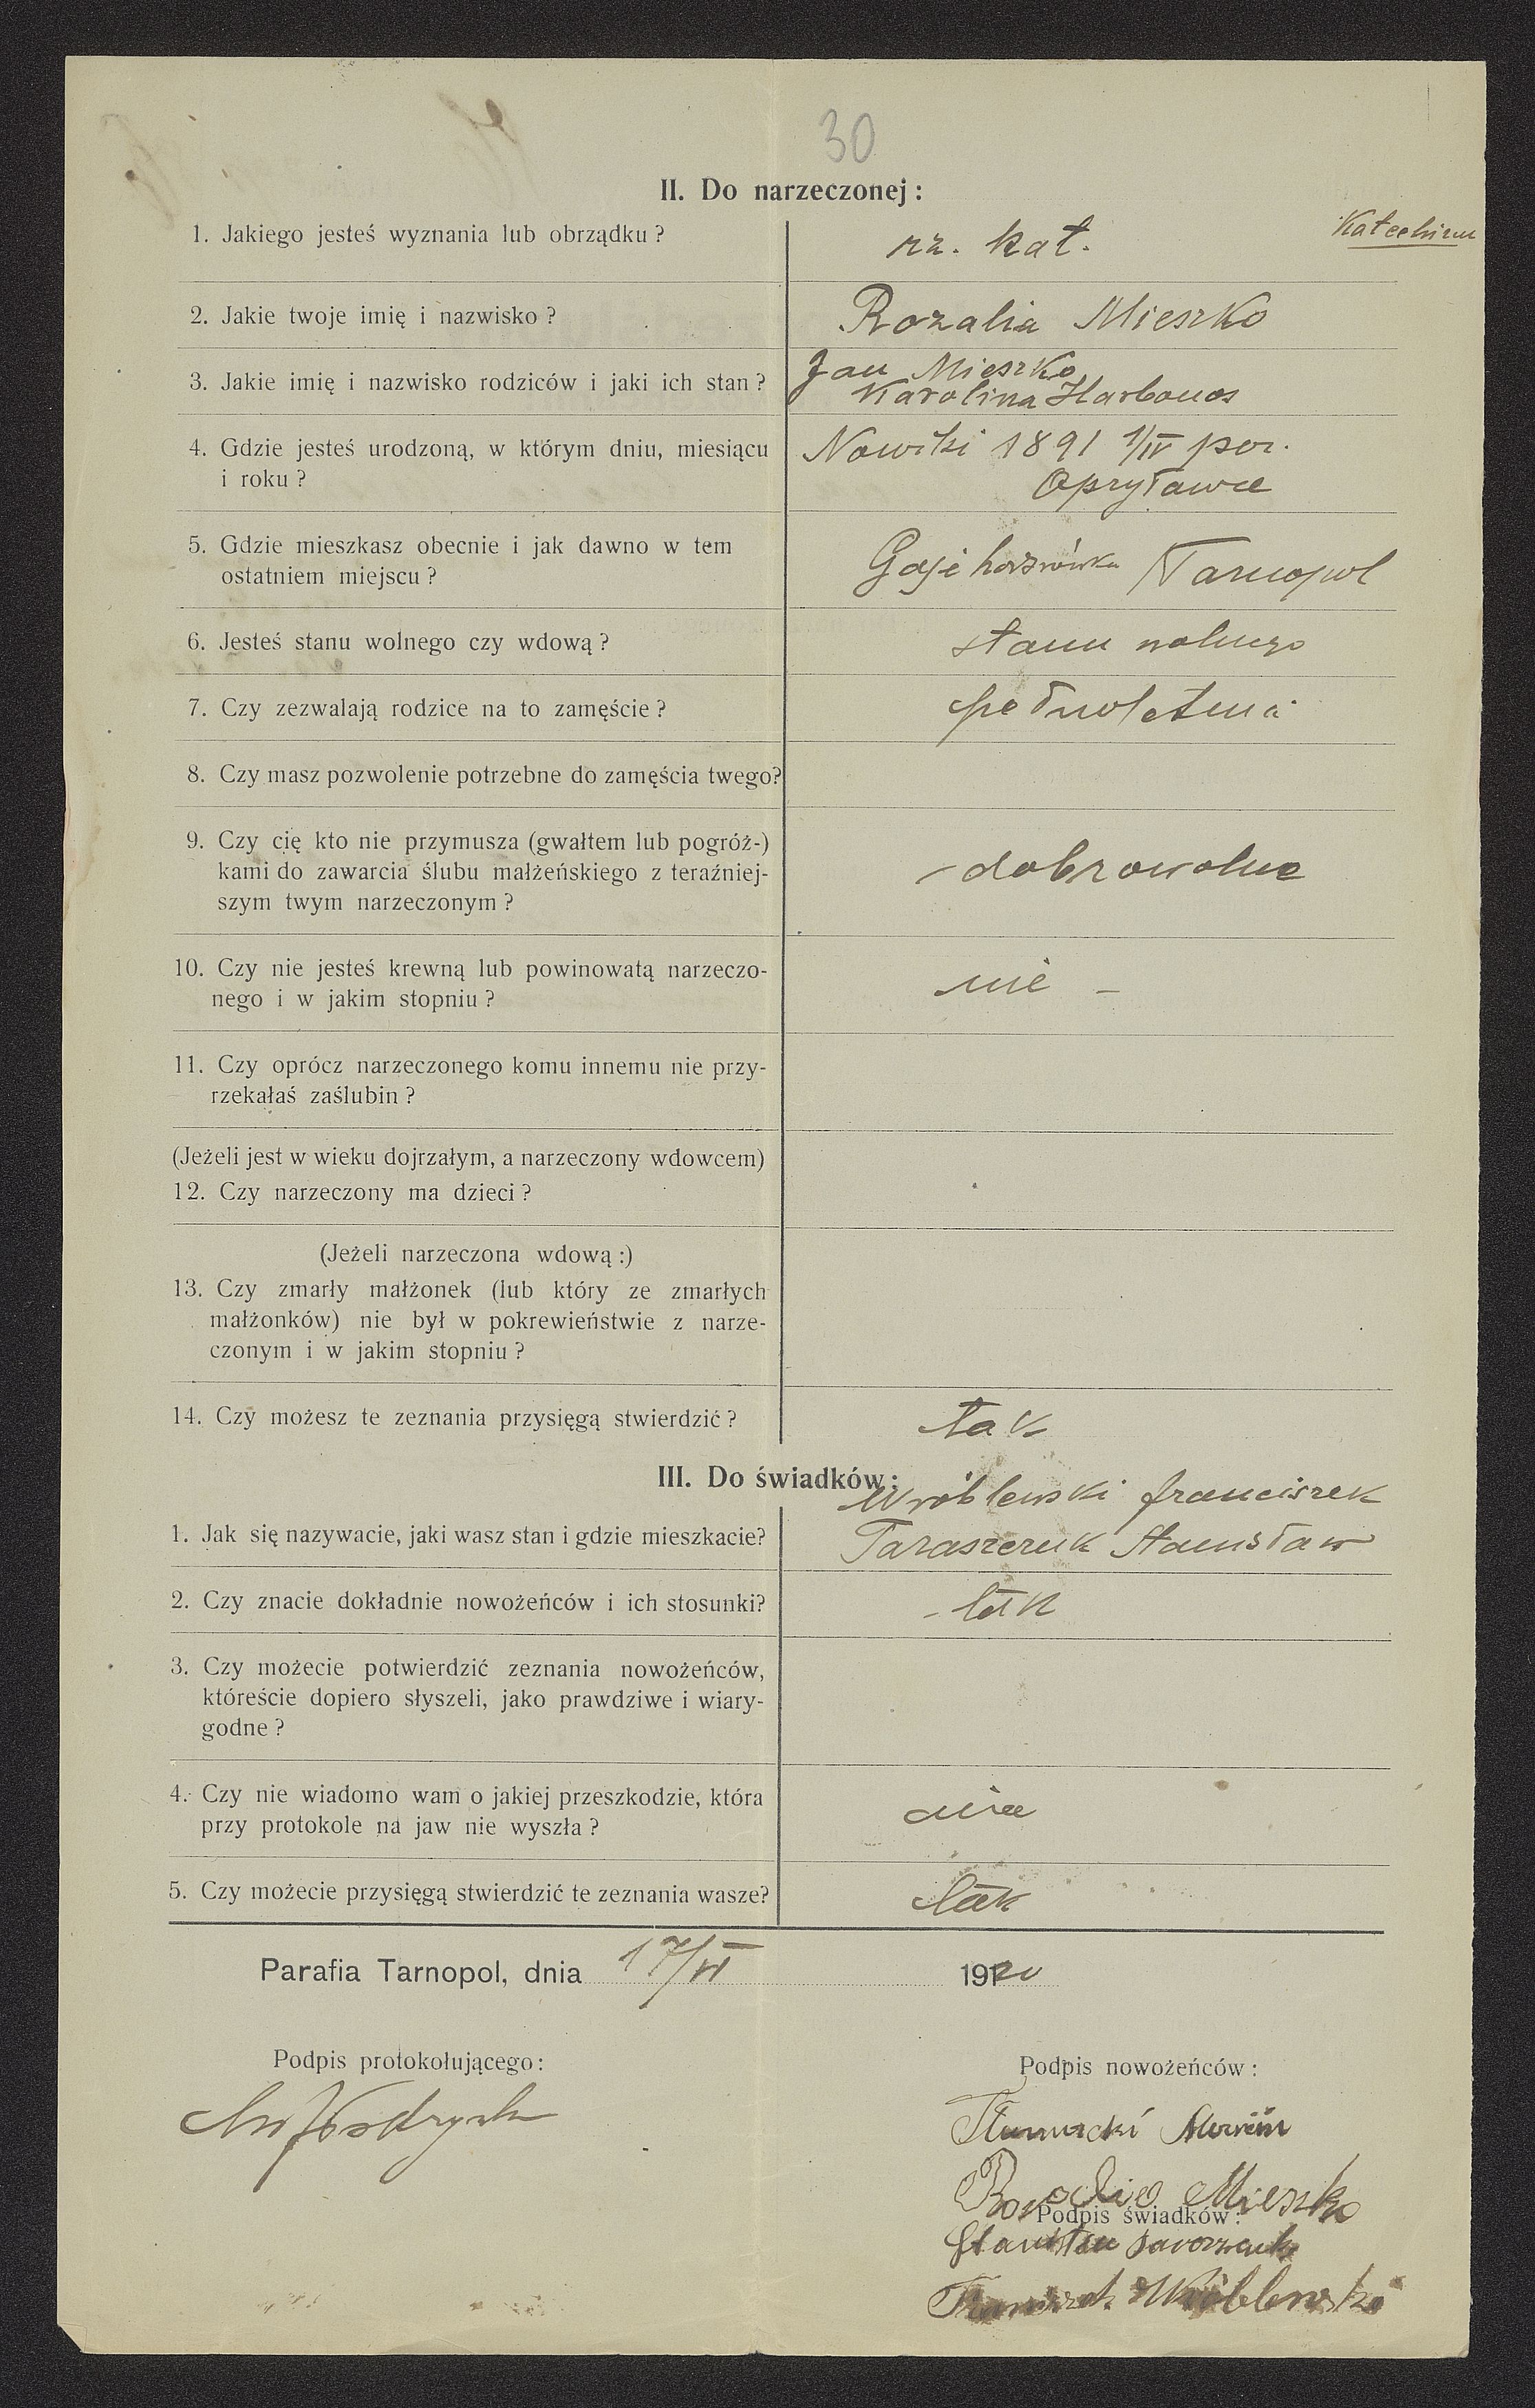 30
II. Do narzeczonej :
Katechizm
1. Jakiego jesteś wyznania lub obrządku ?
rz. kat.
2. Jakie twoje imię i nazwisko ?
Rozalia Mieszko
3. Jakie imię i nazwisko rodziców i jaki ich stan ?
Jan Mieszko
Karolina Harbouos
4. Gdzie jesteś urodzoną, w którym dniu, miesiącu
i roku ?
Nowiki 1891 1/IV por.
Opryławce
5. Gdzie mieszkasz obecnie i jak dawno w tem
ostatniem miejscu ?
Gaje Tarnopol
6. Jesteś stanu wolnego czy wdową ?
stanu wolnego
7. Czy zezwalają rodzice na to zamęście ?
pełnoletnia
8. Czy masz pozwolenie potrzebne do zamęścia twego?
9. Czy cię kto nie przymusza (gwałtem lub pogróż-)
kami do zawarcia ślubu małżeńskiego z teraźniej-
szym twym narzeczonym ?
- dobrowolne
10. Czy nie jesteś krewną lub powinowatą narzeczo-
nego i w jakim stopniu ?
nie -
11. Czy oprócz narzeczonego komu innemu nie przy-
rzekałaś zaślubin ?
(Jeżeli jest w wieku dojrzałym, a narzeczony wdowcem)
12. Czy narzeczony ma dzieci ?
(Jeżeli narzeczona wdową :)
13. Czy zmarły małżonek (lub który ze zmarłych
małżonków) nie był w pokrewieństwie z narze-
czonym i w jakim stopniu ?
14. Czy możesz te zeznania przysięgą stwierdzić ?
tak
III. Do świadków :
Wróblewski Franciszek
1. Jak się nazywacie, jaki wasz stan i gdzie mieszkacie?
Taraszczuk Stanisław
2. Czy znacie dokładnie nowożeńców i ich stosunki?
- tak
3. Czy możecie potwierdzić zeznania nowożeńców,
któreście dopiero słyszeli, jako prawdziwe i wiary-
godne ?
4. Czy nie wiadomo wam o jakiej przeszkodzie, która
przy protokole na jaw nie wyszła ?
nie
5. Czy możecie przysięgą stwierdzić te zeznania wasze?
tak
Parafia Tarnopol, dnia 17/VI 1920
Podpis protokołującego :
Podpis nowożeńców :
Tłumacki Marcin
Rozalia Mieszko
Podpis świadków :
Stanisław
Franciszek Wróblewski